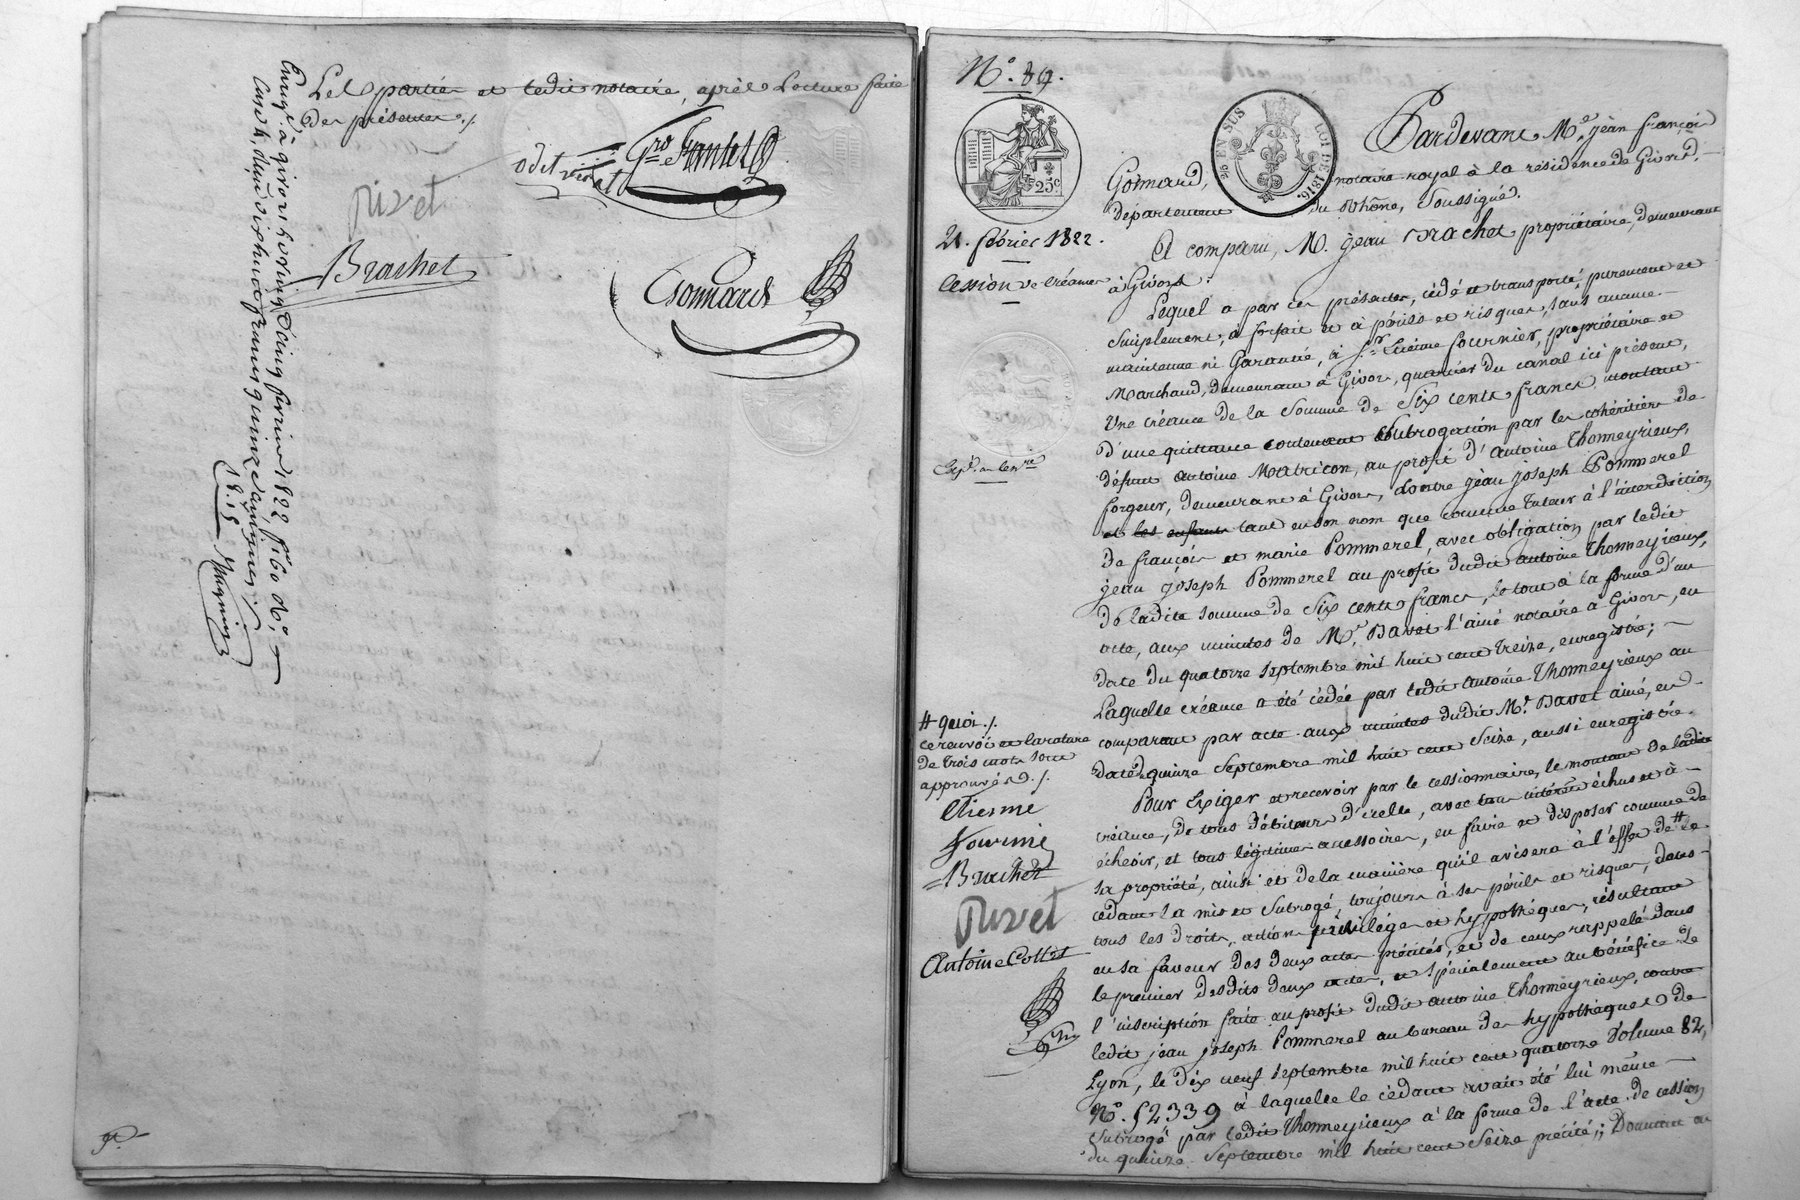 Les parties et ledit notaire, après Lecture faite
des présentes ./.
Brachet
Enreg.é à givors le vingt cinq fevrier 1822 f.o 60
Reçu dix huit francs quinze centimes
N.o 89.
25c
EN SUS
LOI DE 1816.
21. février 1822.
Cession de Créance
Pardevant M.e jean françois
Gonnard, notaire royal à la résidence de Givors,
département du Rhône, Soussigné.
A comparu, M. jean Brachet propriétaire, demeurant
à Givors.
Lequel a par ces présentes, cédé et transporté, purement et
Simplement, à forfait et à périls et risques, sans aucune
maintenue ni Garantie, à S.r Etienne fournier, propriétaire et
Marchand, demeurant à Givors, quartier du canal ici présent,
Une créance de la Somme de Six cents francs montant
d'une quittance contenant Subrogation par les cohéritiers de
défunt Antoine Matricon, au profit d'Antoine Thomeyrieux,
forgeur, demeurant à Givors, contre jean joseph Pommerel
et les enfants tant en son nom que comme tuteur à l'interdiction
de françois et marie Pommerel, avec obligation par ledit
jean joseph Pommerel au profit dudit antoine Thomeyrieux,
de ladite somme de Six cents francs, le tout à la forme d'un
acte, aux minutes de M.e Davet l'ainé notaire à Givors, en
date du quatorze septembre mil huit cent treize, enregistré;
Laquelle créance a été cédée par ledit antoine Thomeyrieux au
comparant par acte aux minutes dudit M.e Davet ainé, en
date du quinze Septembre mil huit cent Seize, aussi enregistré.
Pour Exiger et recevoir par le cessionnaire, le montant de ladite
créance, de tous débiteurs d'icelle, avec tous intérêts échus et à
écheoir, et tous légitimes accessoires, en faire et disposer comme de
sa propriété, ainsi et de la manière qu'il avisera à l'effet de # le
cédant l'a mis et Subrogé, toujours à ses périls et risques, dans
tous les droits, action privilége et hypothéques, résultant
en sa faveur des deux actes précités, et de ceux rappelé dans
le premier desdits deux actes, et spécialement au bénéfice de
l'inscription faite au profit dudit antoine Thomeyrieux, contre
ledit jean joseph Pommerel au bureau des hypothéques de
Lyon, le dix neuf septembre mil huit cent quatorze Volume 82,
N.o 52339 à laquelle le cédant avait été lui même
Subrogé par ledit Thomeyrieux à la forme de l'acte de cession
du quinze Septembre mil huit cent Seize précité; Donnant au
# quoi ./.
ce renvoi et la rature
de trois mots sont
approuvés ./.
Etienne
fournier
Brachet
Antoine Collet